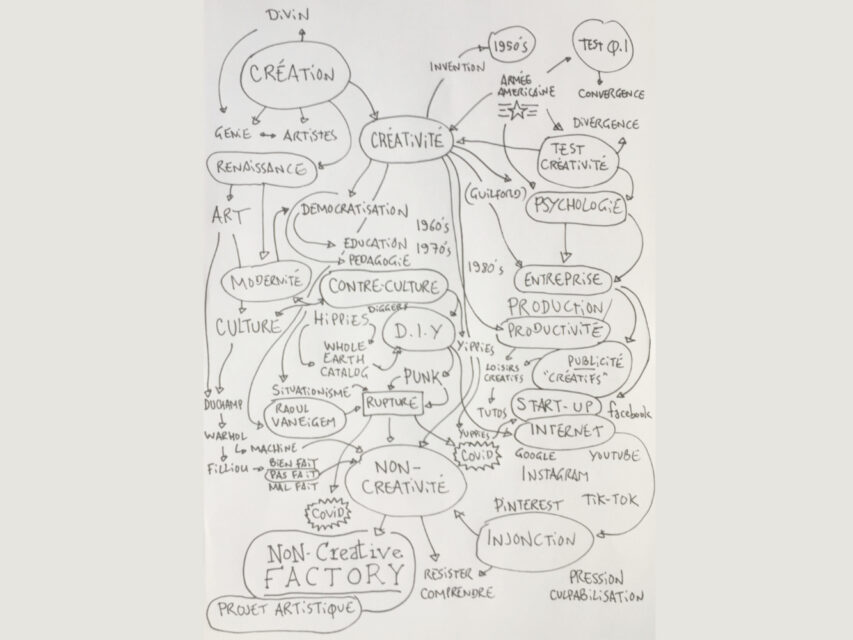 DIVIN
1950's
TEST Q.I
INVENTION
CRÉATION
ARMÉE
AMERICAINE
CONVERGENCE
DIVERGENCE
GENIE
ARTISTES
CRÉATIVITÉ
TEST
CRÉATIVITÉ
RENAISSANCE
(GUILFORD)
PSYCHOLOGIE
ART
DEMOCRATISATION
1960's
EDUCATION
1970's
PEDAGOGIE
1980's
MODERNITÉ
CONTRE-CULTURE
ENTREPRISE
DIGGERS
PRODUCTION/
PRODUCTIVITÉ
CULTURE
HIPPIES
D.I.Y
WHOLE
EARTH
CATALOG
YIPPIES
LOISIRS
CREATIFS
PUBLICITÉ
"CRÉATIFS"
PUNK
SITUATIONISME
RUPTURE
DUCHAMP
RAOUL
VANEIGEM
TUTOS
START-UP
facebook
WARHOL
MACHINE
YUPPIES
INTERNET
FILLIOU
BIEN FAIT
PAS FAIT
MAL FAIT
COVID
GOOGLE
YOUTUBE
NON-
CREATIVITÉ
INSTAGRAM
COVID
PINTEREST
TIK-TOK
INJONCTION
NON-Creative
FACTORY
RESISTER
COMPRENDRE
PRESSION
CULPABILISATION
PROJET ARTISTIQUE